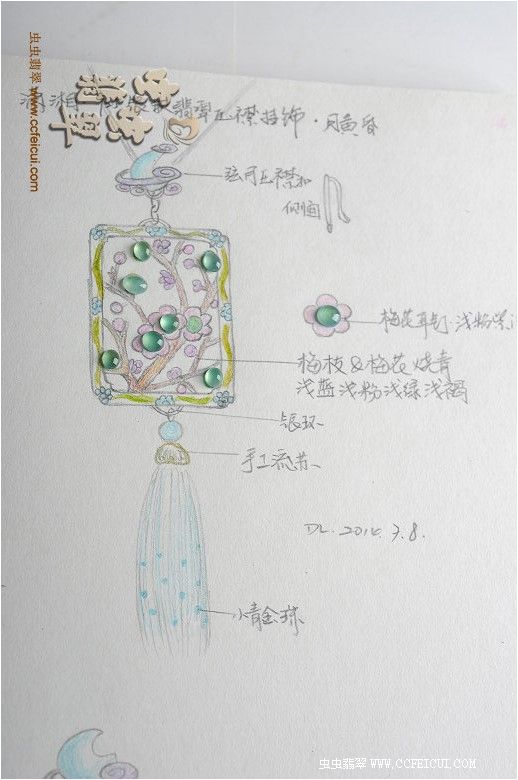 虫虫翡翠 www.ccfeicui.com
虫虫翡翠
潇湘 翡翠压襟挂饰·月黄昏
弦月压襟扣
侧面
梅花耳钉·浅粉
梅枝&梅花烧青
浅蓝浅粉浅绿浅褐
银环
手工流苏
DL. 2014.3.8.
小青金珠
虫虫翡翠 WWW.CCFEICUI.COM